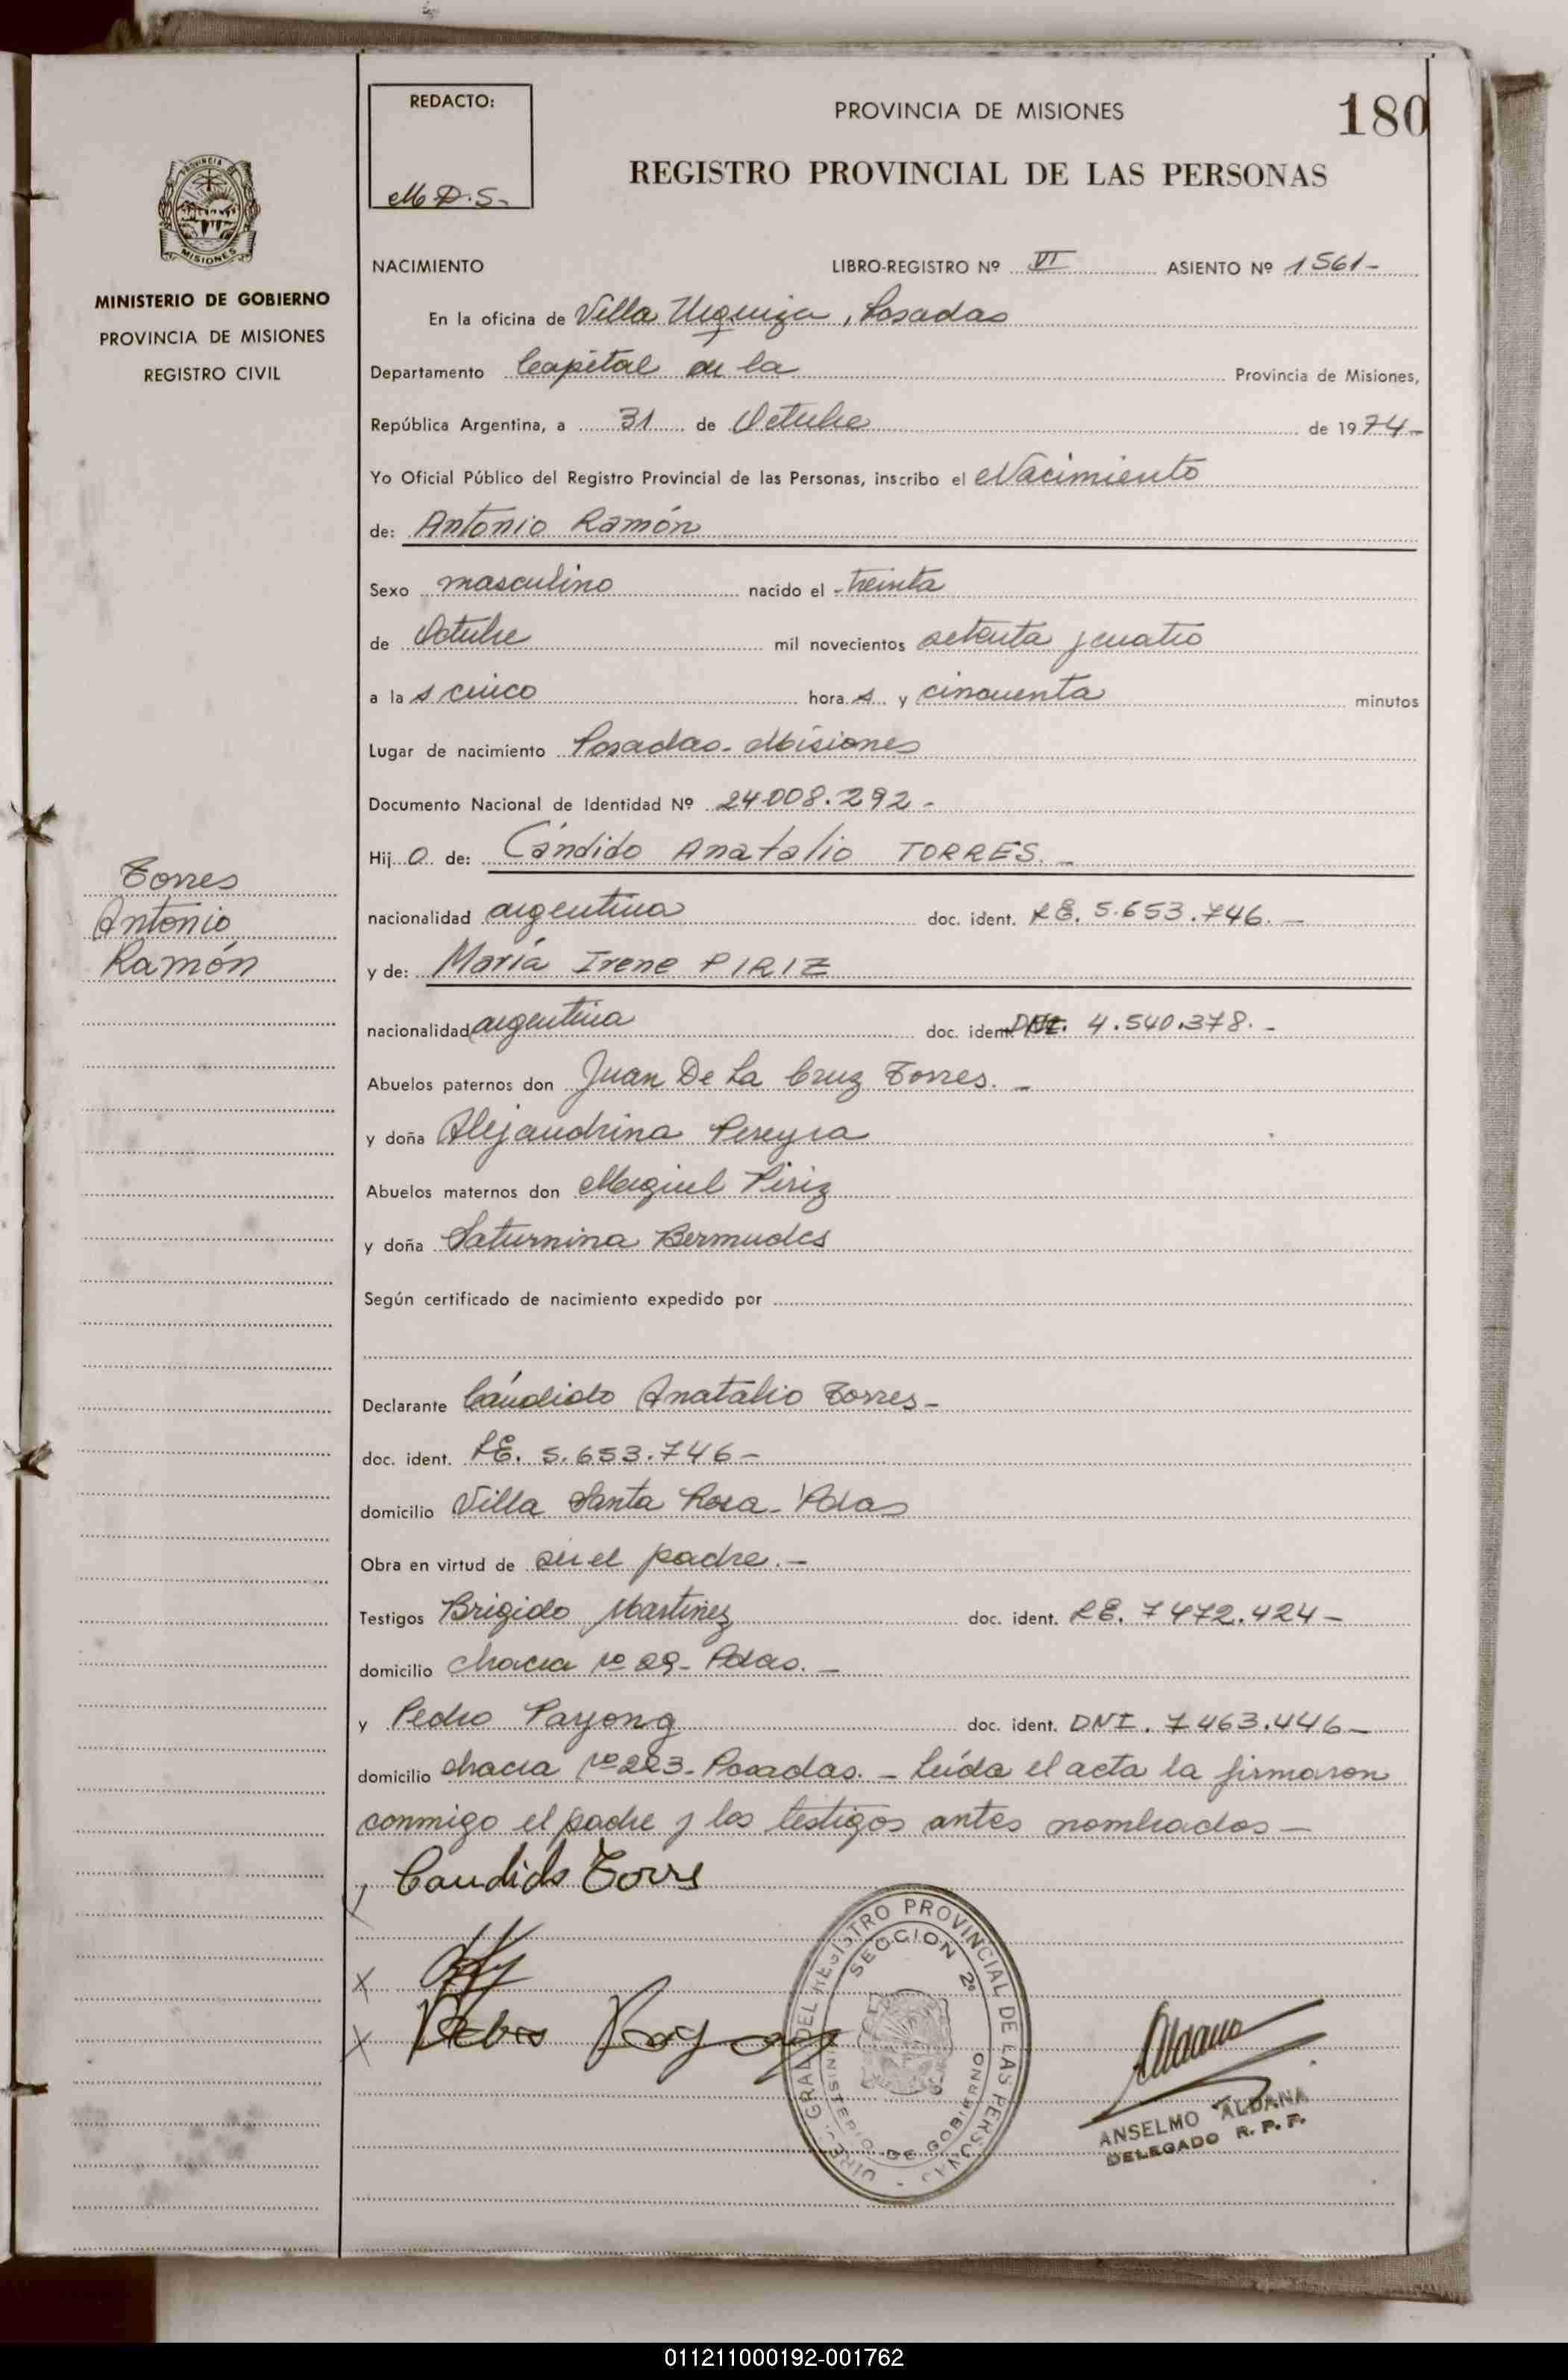 180
REDACTO:
M.D.S.-
PROVINCIA DE MISIONES
REGISTRO PROVINCIAL DE LAS PERSONAS
PROVINCIA
MISIONES
MINISTERIO DE GOBIERNO
PROVINCIA DE MISIONES
REGISTRO CIVIL
NACIMIENTO LIBRO-REGISTRO Nº VI ASIENTO Nº 1561-
En la oficina de Villa Urquiza, Posadas
Departamento Capital de la Provincia de Misiones,
República Argentina, a 31 de Octubre de 1974-
Yo Oficial Público del Registro Provincial de las Personas, inscribo el Nacimiento
de: Antonio Ramón
Sexo masculino nacido el - treinta
de Octubre mil novecientos setenta y cuatro
a las cinco horas y cincuenta minutos
Lugar de nacimiento Posadas - Misiones
Documento Nacional de Identidad Nº 24.008.292-
Hijo de: Cándido Anatalio TORRES.-
nacionalidad argentina doc. ident. LE. 5.653.746.-
y de: María Irene PIRIZ
nacionalidad argentina doc. ident. DNI. 4.540.378.-
Abuelos paternos don Juan De La Cruz Torres.-
y doña Alejandrina Pereyra
Abuelos maternos don Miguel Piriz
y doña Saturnina Bermudes
Según certificado de nacimiento expedido por
Declarante Cándido Anatalio Torres-
doc. ident. LE. 5.653.746-
domicilio Villa Santa Rosa - Pdas
Obra en virtud de ser el padre.-
Testigos Brigido Martinez doc. ident. LE. 7472.424-
domicilio chacra nº 29- Pdas.-
y Pedro Payong doc. ident. DNI. 7.463.446-
domicilio chacra nº 223- Posadas.- Leída el acta la firmaron
conmigo el padre y los testigos antes nombrados-
Torres
Antonio
Ramón
x Candido Torre
x
x
DIREC. GRAL DEL REGISTRO PROVINCIAL DE LAS PERSONAS -
SECCION 2ª
MINISTERIO DE GOBIERNO
Aldana
ANSELMO ALDANA
DELEGADO R. P. P.
011211000192-001762